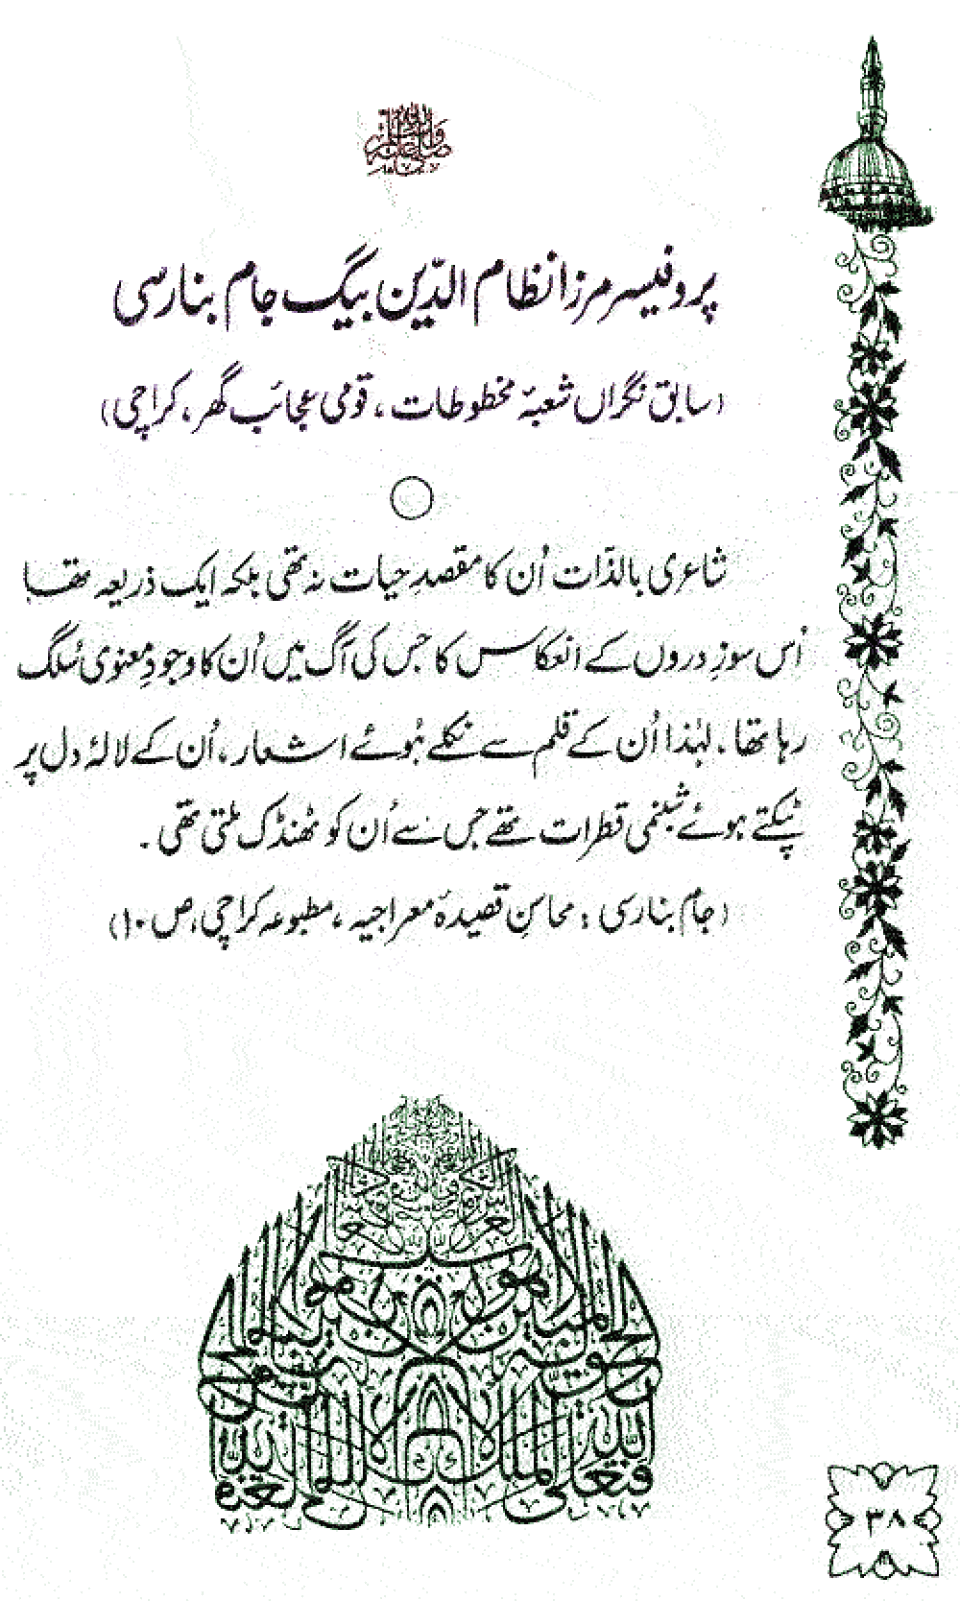 صلی اللہ علیہ وآلہ وسلم
پروفیسر مرزا نظام الدّین بیگ جام بنارسی
(سابق نگراں شعبۂ مخطوطات، قومی عجائب گھر، کراچی)
شاعری بالذّات اُن کا مقصدِ حیات نہ تھی بلکہ ایک ذریعہ تھا
اُس سوزِ دروں کے انعکاس کا جس کی آگ میں اُن کا وجودِ معنوی سُلگ
رہا تھا۔ لہٰذا اُن کے قلم سے نکلے ہُوئے اشعار، اُن کے لالۂ دل پر
ٹپکتے ہوئے شبنمی قطرات تھے جس سے اُن کو ٹھنڈک ملتی تھی۔
(جام بنارسی: محاسنِ قصیدۂ معراجیہ، مطبوعہ کراچی، ص ۱۰)
۳۸